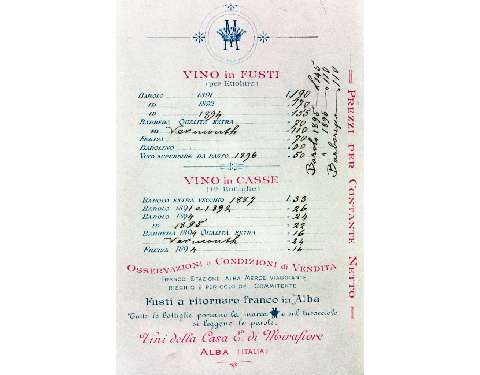 VINO in FUSTI
(per Ettolitro)
BAROLO 1891 190
ID 1892 170
ID 1894 135
BARBERA QUALITÀ EXTRA 70
ID Vermouth 110
FREISA 70
BAROLINO
VINO SUPERIORE DA PASTO 1896 50
Barolo 1895 145
" 1896 110
Barbaresco 110
VINO in CASSE
BAROLO EXTRA VECCHIO 1887 L. 33
BAROLO 1891 e 1892 26
BAROLO 1894 24
ID 1895 22
BARBERA 1894 QUALITÀ EXTRA 16
Vermouth 24
FREISA 1894 14
PREZZI PER CONTANTE NETTO
OSSERVAZIONI e CONDIZIONI di VENDITA
FRANCO STAZIONE ALBA MERCE VIAGGIANTE
RISCHIO E PERICOLO DEL COMMITENTE
Fusti a ritornare franco in Alba
Tutte le bottiglie portano la marca e sul turacciolo
si leggono le parole:
Vini della Casa E. di Mirafiore
ALBA (ITALIA)